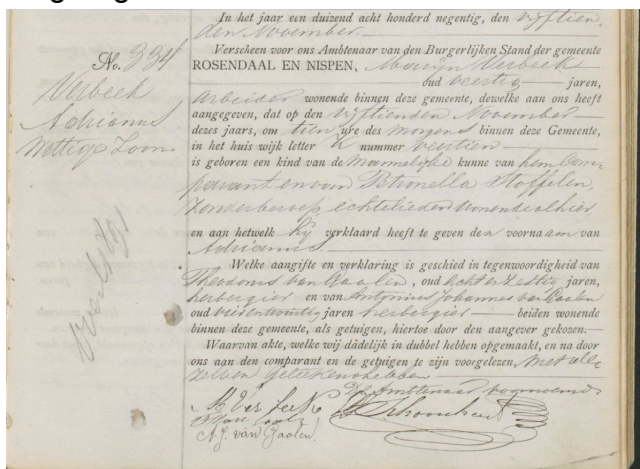 In het jaar een duizend acht honderd negentig, den vijftien
den November.
No. 334
Verbeek
Adrianus
Wettige Zoon
Verscheen voor ons Ambtenaar van den Burgerlijken Stand der gemeente
ROSENDAAL EN NISPEN, Marijn Verbeek
oud veertig jaren,
arbeider wonende binnen deze gemeente, dewelke aan ons heeft
aangegeven, dat op den vijftienden November
dezes jaars, om tien ure des morgens binnen deze Gemeente,
in het huis wijk letter K nummer veertien
is geboren een kind van de Mannelijke kunne van hem Com-
parant en van Petronella Stoffelen,
zonder beroep echtelieden wonende alhier
en aan hetwelk hij verklaard heeft te geven den voornaam van
Adrianus
Welke aangifte en verklaring is geschied in tegenwoordigheid van
Theodorus van Gaalen, oud acht en zestig jaren,
herbergier en van Antonius Johannes van Gaalen
oud vier en twintig jaren herbergier beiden wonende
binnen deze gemeente, als getuigen, hiertoe door den aangever gekozen.
Waarvan akte, welke wij dadelijk in dubbel hebben opgemaakt, en na door
ons aan den comparant en de getuigen te zijn voorgelezen, met alle
zelven geteekend hebben
De Ambtenaar voornoemd
M Verbeek
A. J. van Gaalen